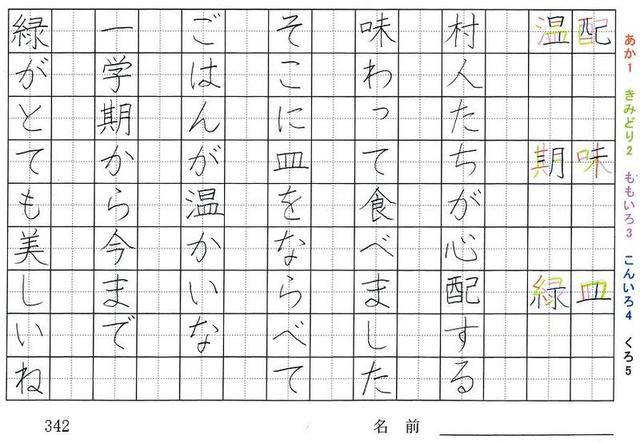 あか1 きみどり2 ももいろ3 こんいろ4 くろ5
配 味 皿
温 期 緑
村人たちが心配する
味わって食べました
そこに皿をならべて
ごはんが温かいな
一学期から今まで
緑がとても美しいね
342
名前